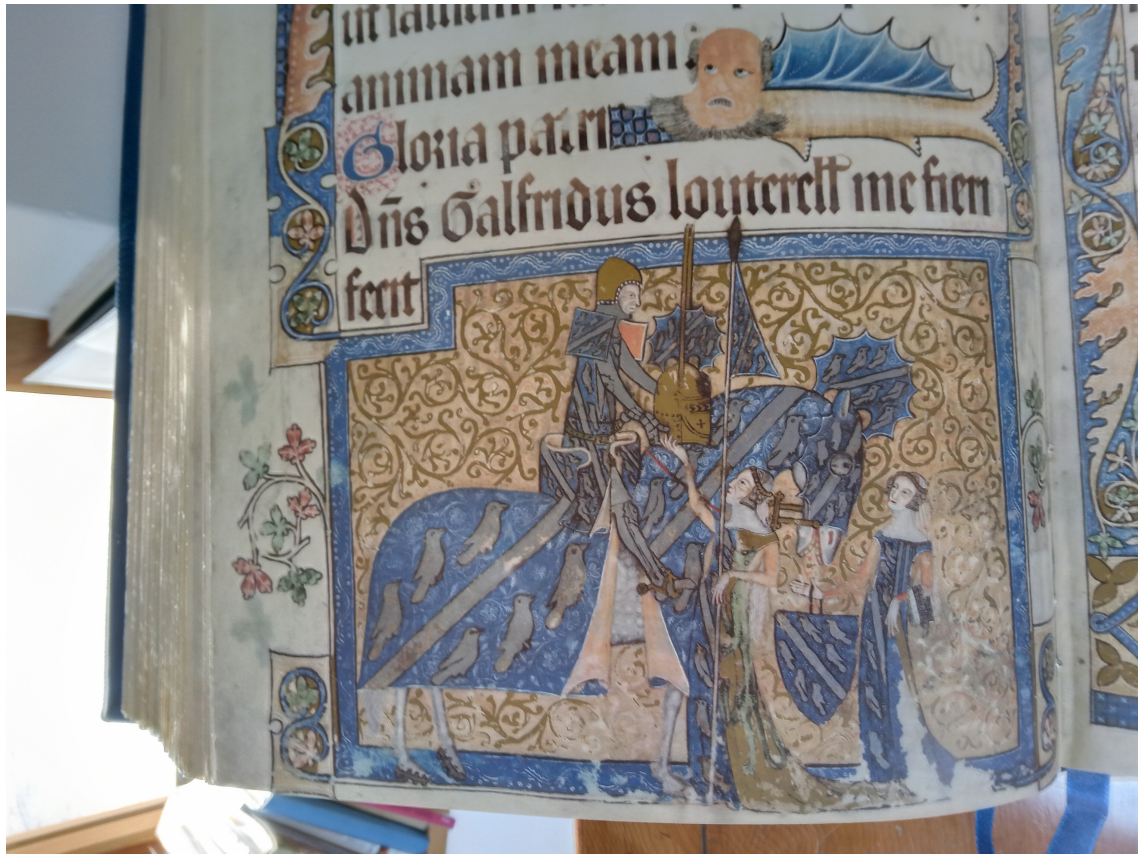 animam meam
Gloria patri
Dn̄s Galfridus louterell me fieri
fecit